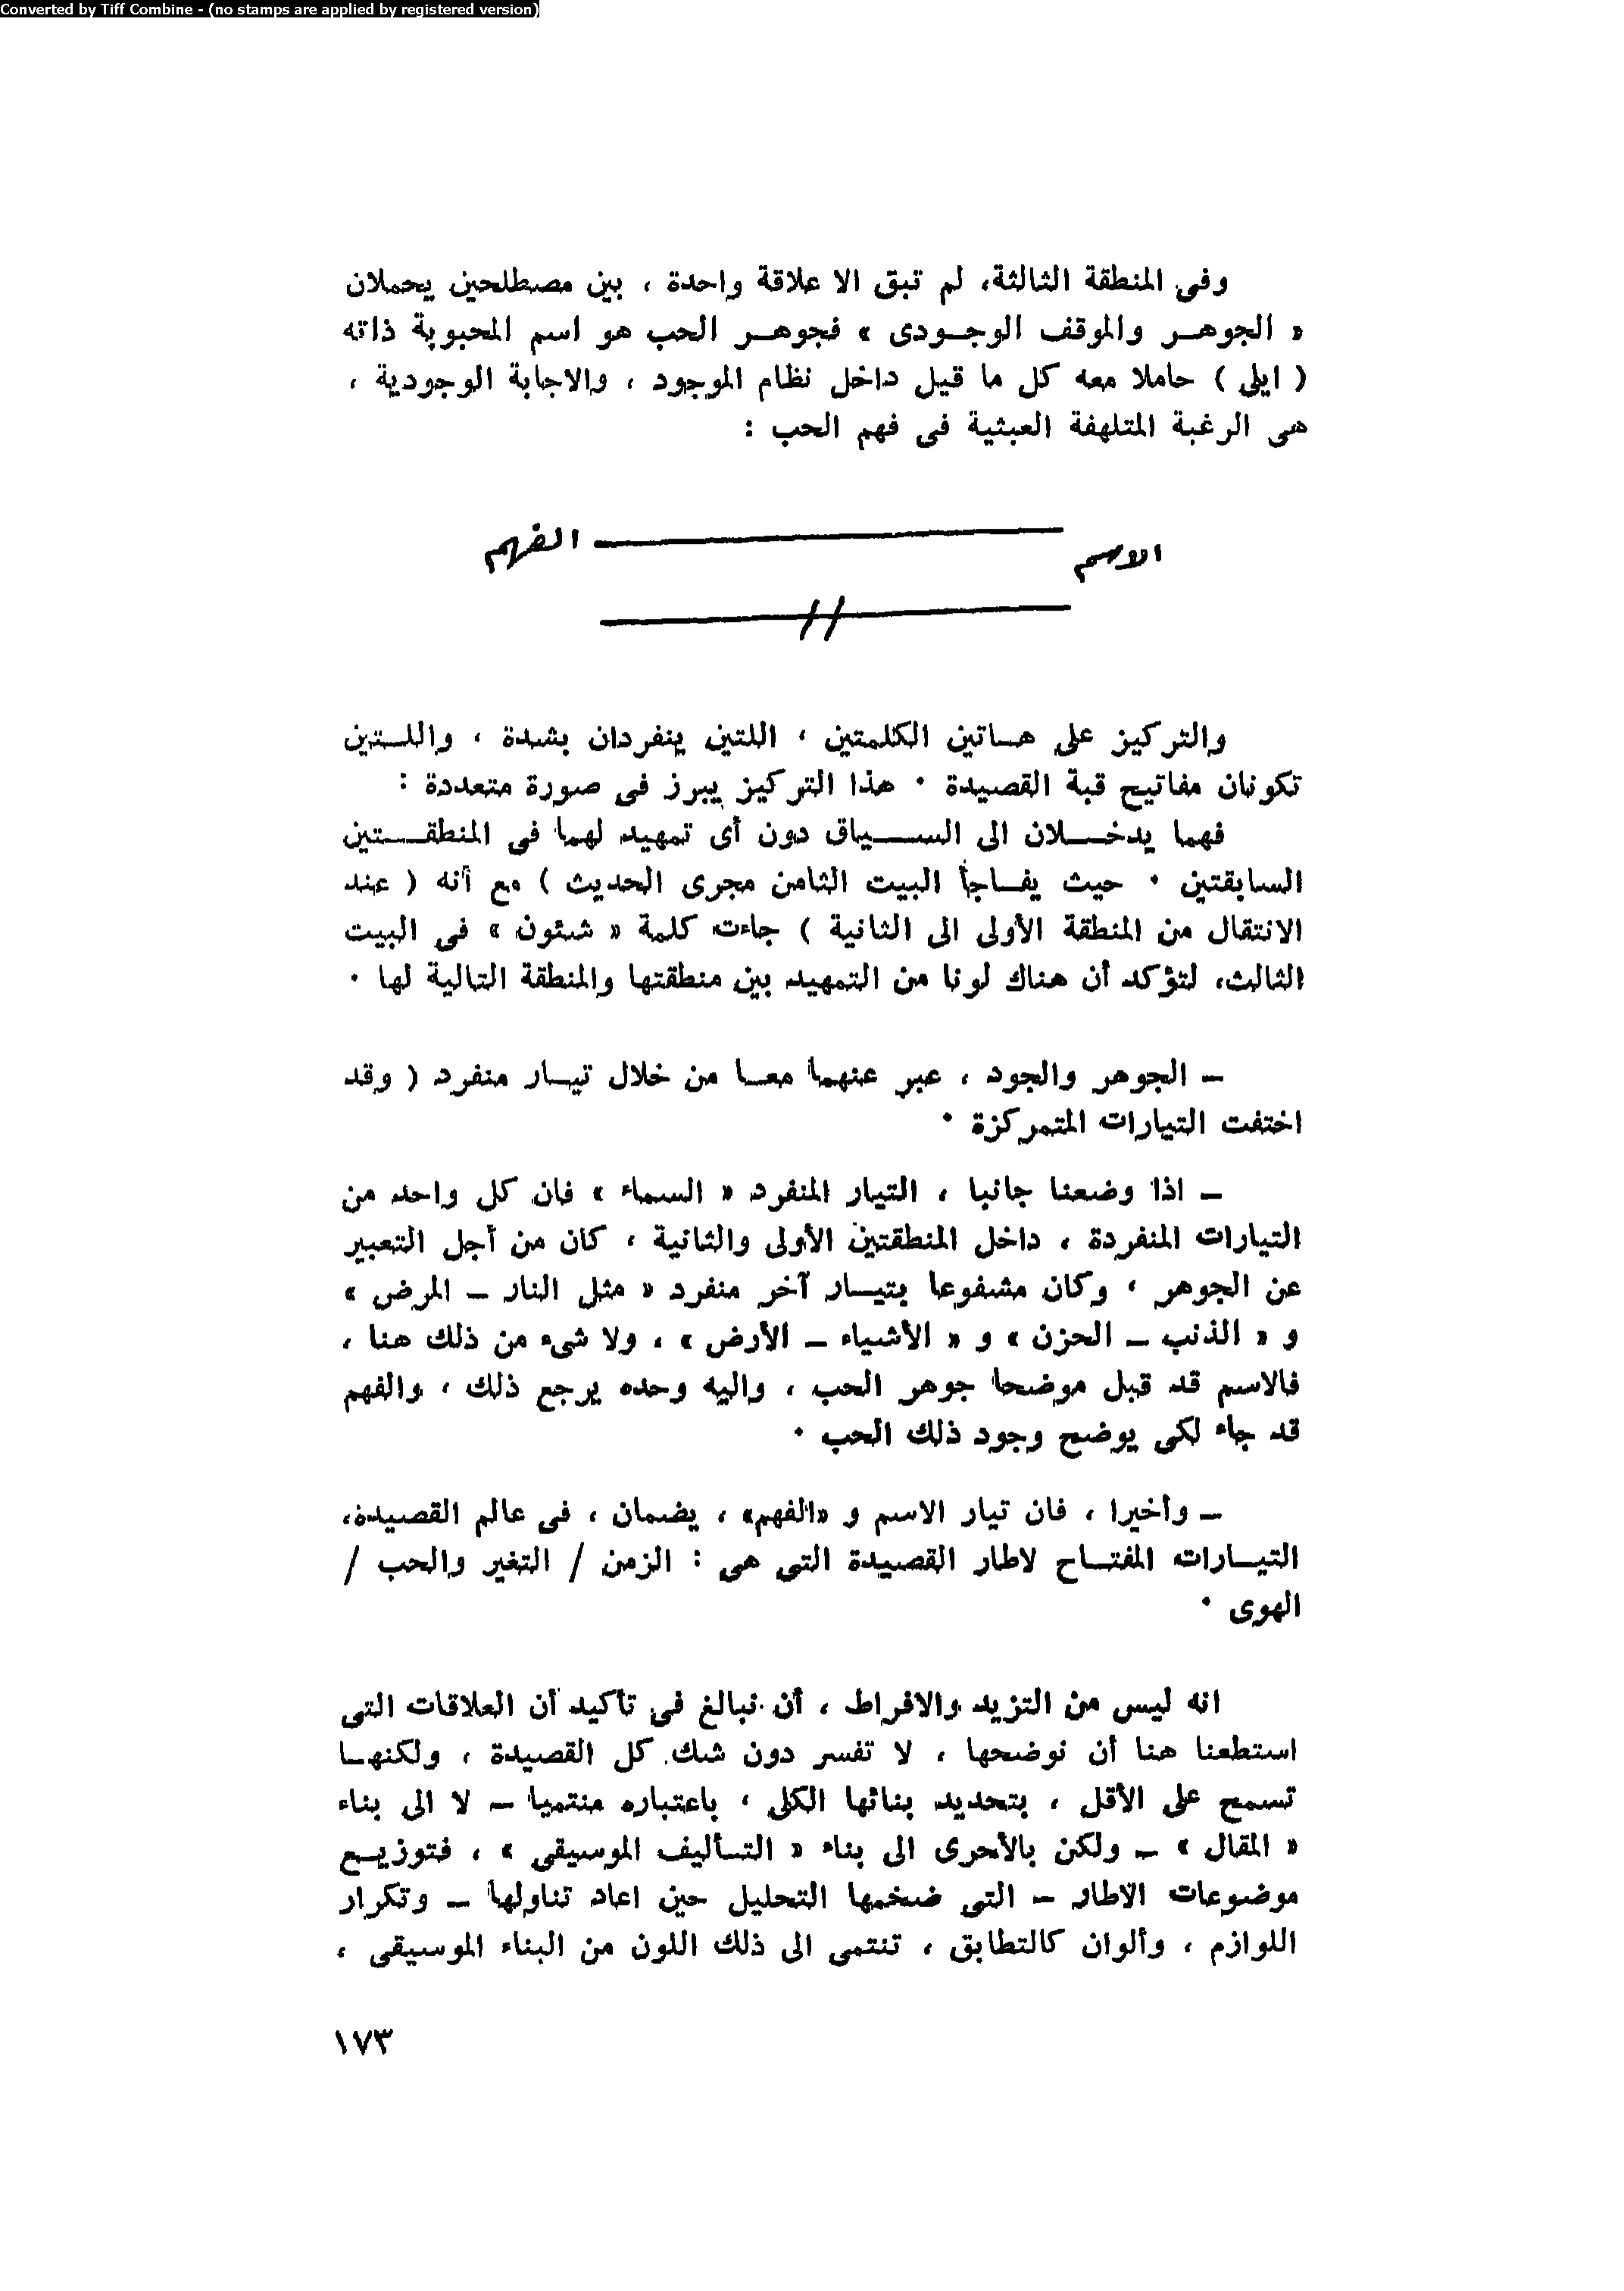 Converted by Tiff Combine - (no stamps are applied by registered version)
وفى المنطقة الثالثة، لم تبق الا علاقة واحدة ، بين مصطلحين يحملان
« الجوهر والموقف الوجودى » فجوهر الحب هو اسم المحبوبة ذاته
( ايلى ) حاملا معه كل ما قيل داخل نظام الموجود ، والاجابة الوجودية ،
هى الرغبة المتلهفة العبثية فى فهم الحب :
الاسم ــــــــ الفهم
ـــــ // ـــــ
والتركيز على هاتين الكلمتين ، اللتين ينفردان بشدة ، واللتين
تكونان مفاتيح قبة القصيدة · هذا التركيز يبرز فى صورة متعددة :
فهما يدخلان الى السياق دون أى تمهيد لهما فى المنطقتين
السابقتين · حيث يفاجأ البيت الثامن مجرى الحديث ) مع أنه ( عند
الانتقال من المنطقة الأولى الى الثانية ) جاءت كلمة « شئون » فى البيت
الثالث، لتؤكد أن هناك لونا من التمهيد بين منطقتها والمنطقة التالية لها ·
– الجوهر والجود ، عبر عنهما معا من خلال تيار منفرد ( وقد
اختفت التيارات المتمركزة ·
– اذا وضعنا جانبا ، التيار المنفرد « السماء » فان كل واحد من
التيارات المنفردة ، داخل المنطقتين الأولى والثانية ، كان من أجل التعبير
عن الجوهر ، وكان مشفوعا بتيار آخر منفرد « مثل النار – المرض »
و « الذنب – الحزن » و « الأشياء – الأرض » ، ولا شىء من ذلك هنا ،
فالاسم قد قبل موضحا جوهر الحب ، واليه وحده يرجع ذلك ، والفهم
قد جاء لكى يوضح وجود ذلك الحب ·
– وأخيرا ، فان تيار الاسم و «الفهم» ، يضمان ، فى عالم القصيدة،
التيارات المفتاح لاطار القصيدة التى هى : الزمن / التغير والحب /
الهوى ·
انه ليس من التزيد والافراط ، أن نبالغ فى تأكيد أن العلاقات التى
استطعنا هنا أن نوضحها ، لا تفسر دون شك كل القصيدة ، ولكنها
تسمح على الأقل ، بتحديد بنائها الكلى ، باعتباره منتميا – لا الى بناء
« المقال » – ولكن بالأحرى الى بناء « التأليف الموسيقى » ، فتوزيع
موضوعات الاطار – التى ضخمها التحليل حين اعاد تناولها – وتكرار
اللوازم ، وألوان كالتطابق ، تنتمى الى ذلك اللون من البناء الموسيقى ،
١٧٣